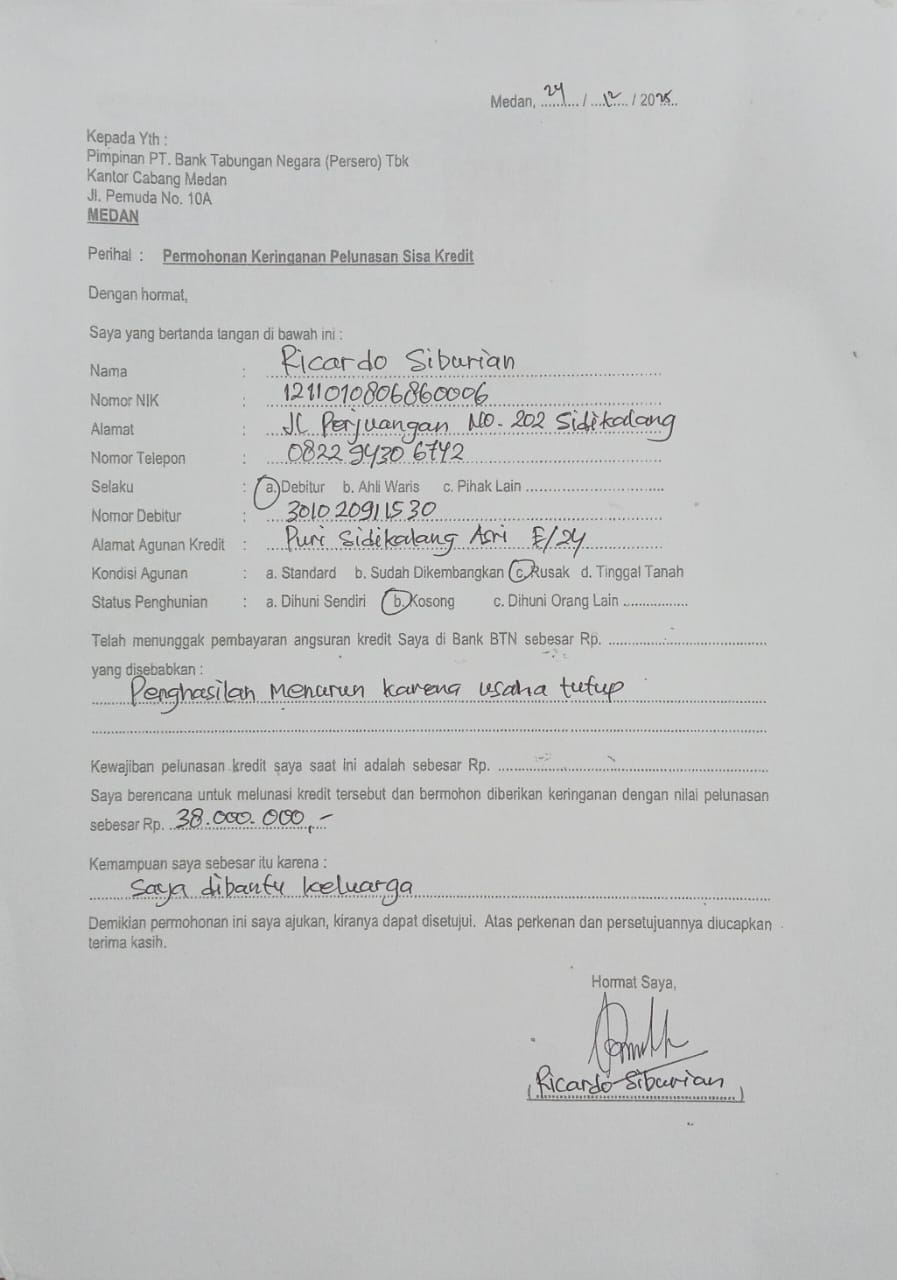 Medan, 24 / 12 / 2025
Kepada Yth :
Pimpinan PT. Bank Tabungan Negara (Persero) Tbk
Kantor Cabang Medan
Jl. Pemuda No. 10A
MEDAN
Perihal : Permohonan Keringanan Pelunasan Sisa Kredit
Dengan hormat,
Saya yang bertanda tangan di bawah ini :
Nama : Ricardo Siburian
Nomor NIK : 1211010806860006
Alamat : Jl Perjuangan No. 202 Sidikalang
Nomor Telepon : 0822 9430 6742
Selaku : a. Debitur b. Ahli Waris c. Pihak Lain
Nomor Debitur : 30102 0911530
Alamat Agunan Kredit : Puri Sidikalang Asri E/24
Kondisi Agunan : a. Standard b. Sudah Dikembangkan c. Rusak d. Tinggal Tanah
Status Penghunian : a. Dihuni Sendiri b. Kosong c. Dihuni Orang Lain
Telah menunggak pembayaran angsuran kredit Saya di Bank BTN sebesar Rp.
yang disebabkan :
Penghasilan menurun karena usaha tutup
Kewajiban pelunasan kredit saya saat ini adalah sebesar Rp.
Saya berencana untuk melunasi kredit tersebut dan bermohon diberikan keringanan dengan nilai pelunasan
sebesar Rp. 38.000.000,-
Kemampuan saya sebesar itu karena :
Saya dibantu keluarga
Demikian permohonan ini saya ajukan, kiranya dapat disetujui. Atas perkenan dan persetujuannya diucapkan
terima kasih.
Hormat Saya,
(Ricardo Siburian)